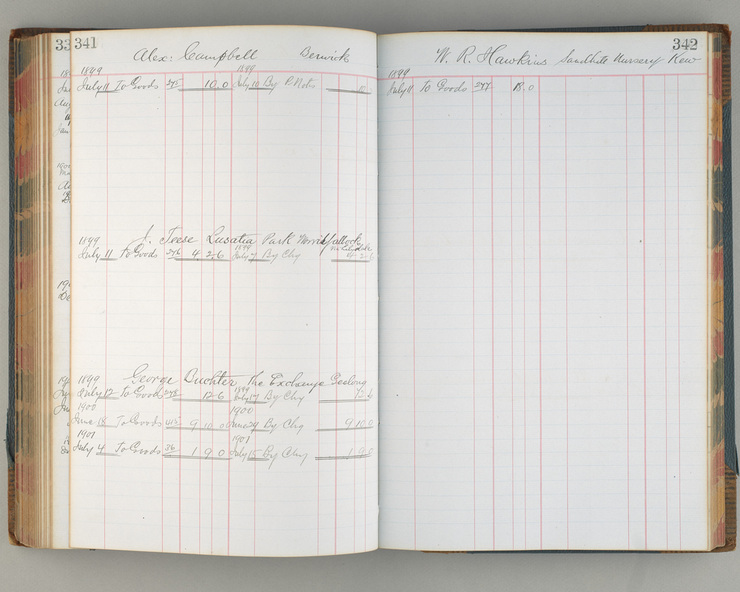 341
Alex: Campbell Berwick
1899 1899
July 11 To Goods 275 10. 0 July 10 By P. Note 10
1899 J. Teese Lusatia Park
1899
July 11 To Goods 276 4. 2. 6 July 7 By Chq 4. 2. 6
1899 George Buchter The Exchange Geelong
July 12 To Goods 12. 6 1899 July 17 By Chq 12. 6
1900 1900
June 18 To Goods 9 10. 0 June 29 By Chq 9 10. 0
1901 1901
July 4 To Goods 36 1 9 0 July 15 By Chq 1 9 0
342
W. R. Hawkins Sandhills Nursery Kew
1899
July 11 To Goods 277 18. 0
33